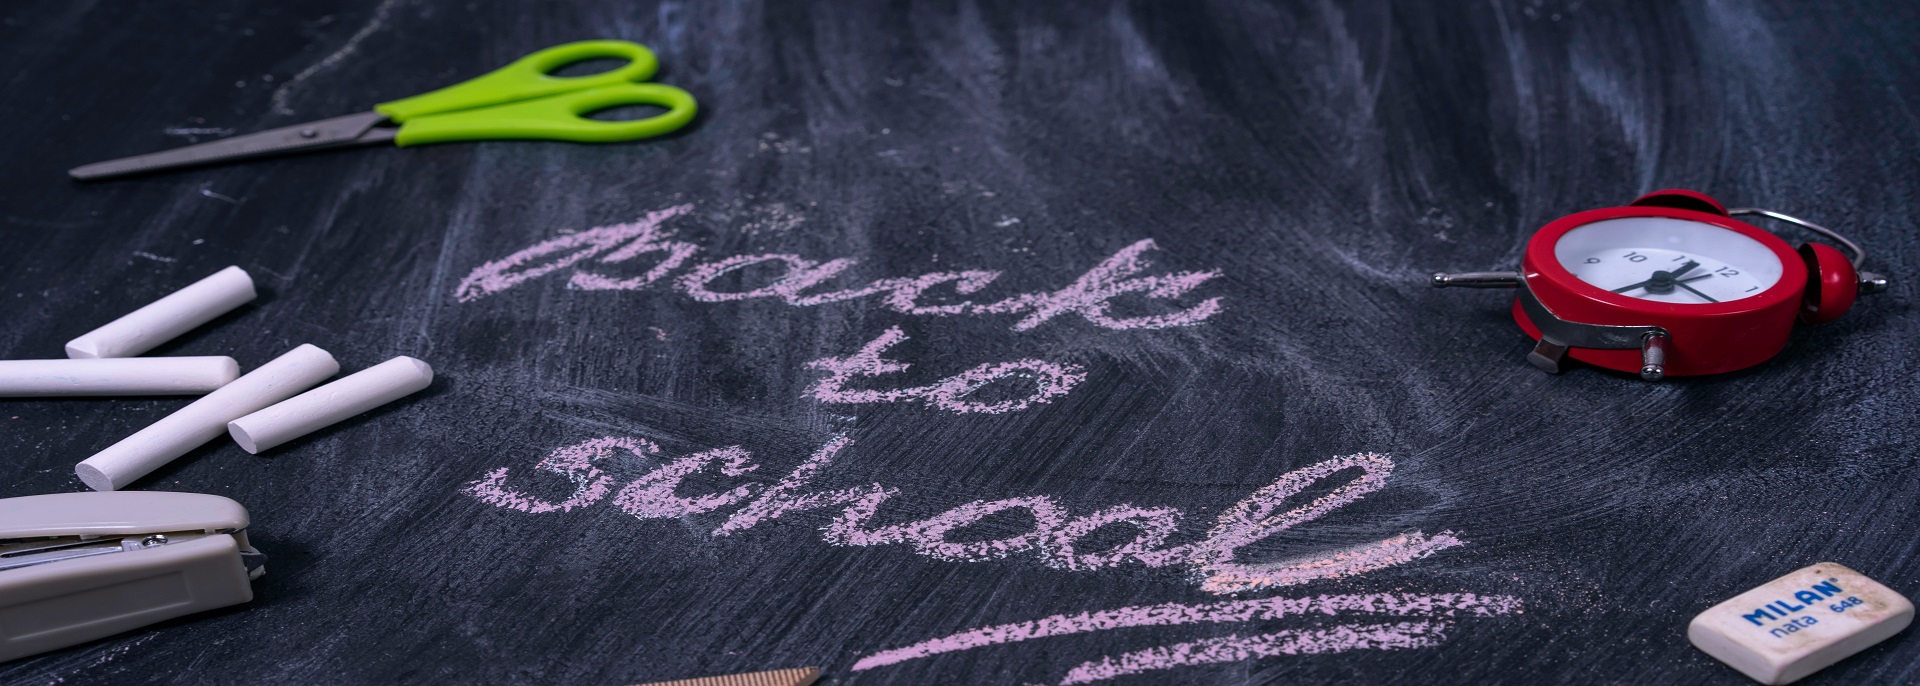 back
to
school
9 10 11 12 1
MILAN
nata 648